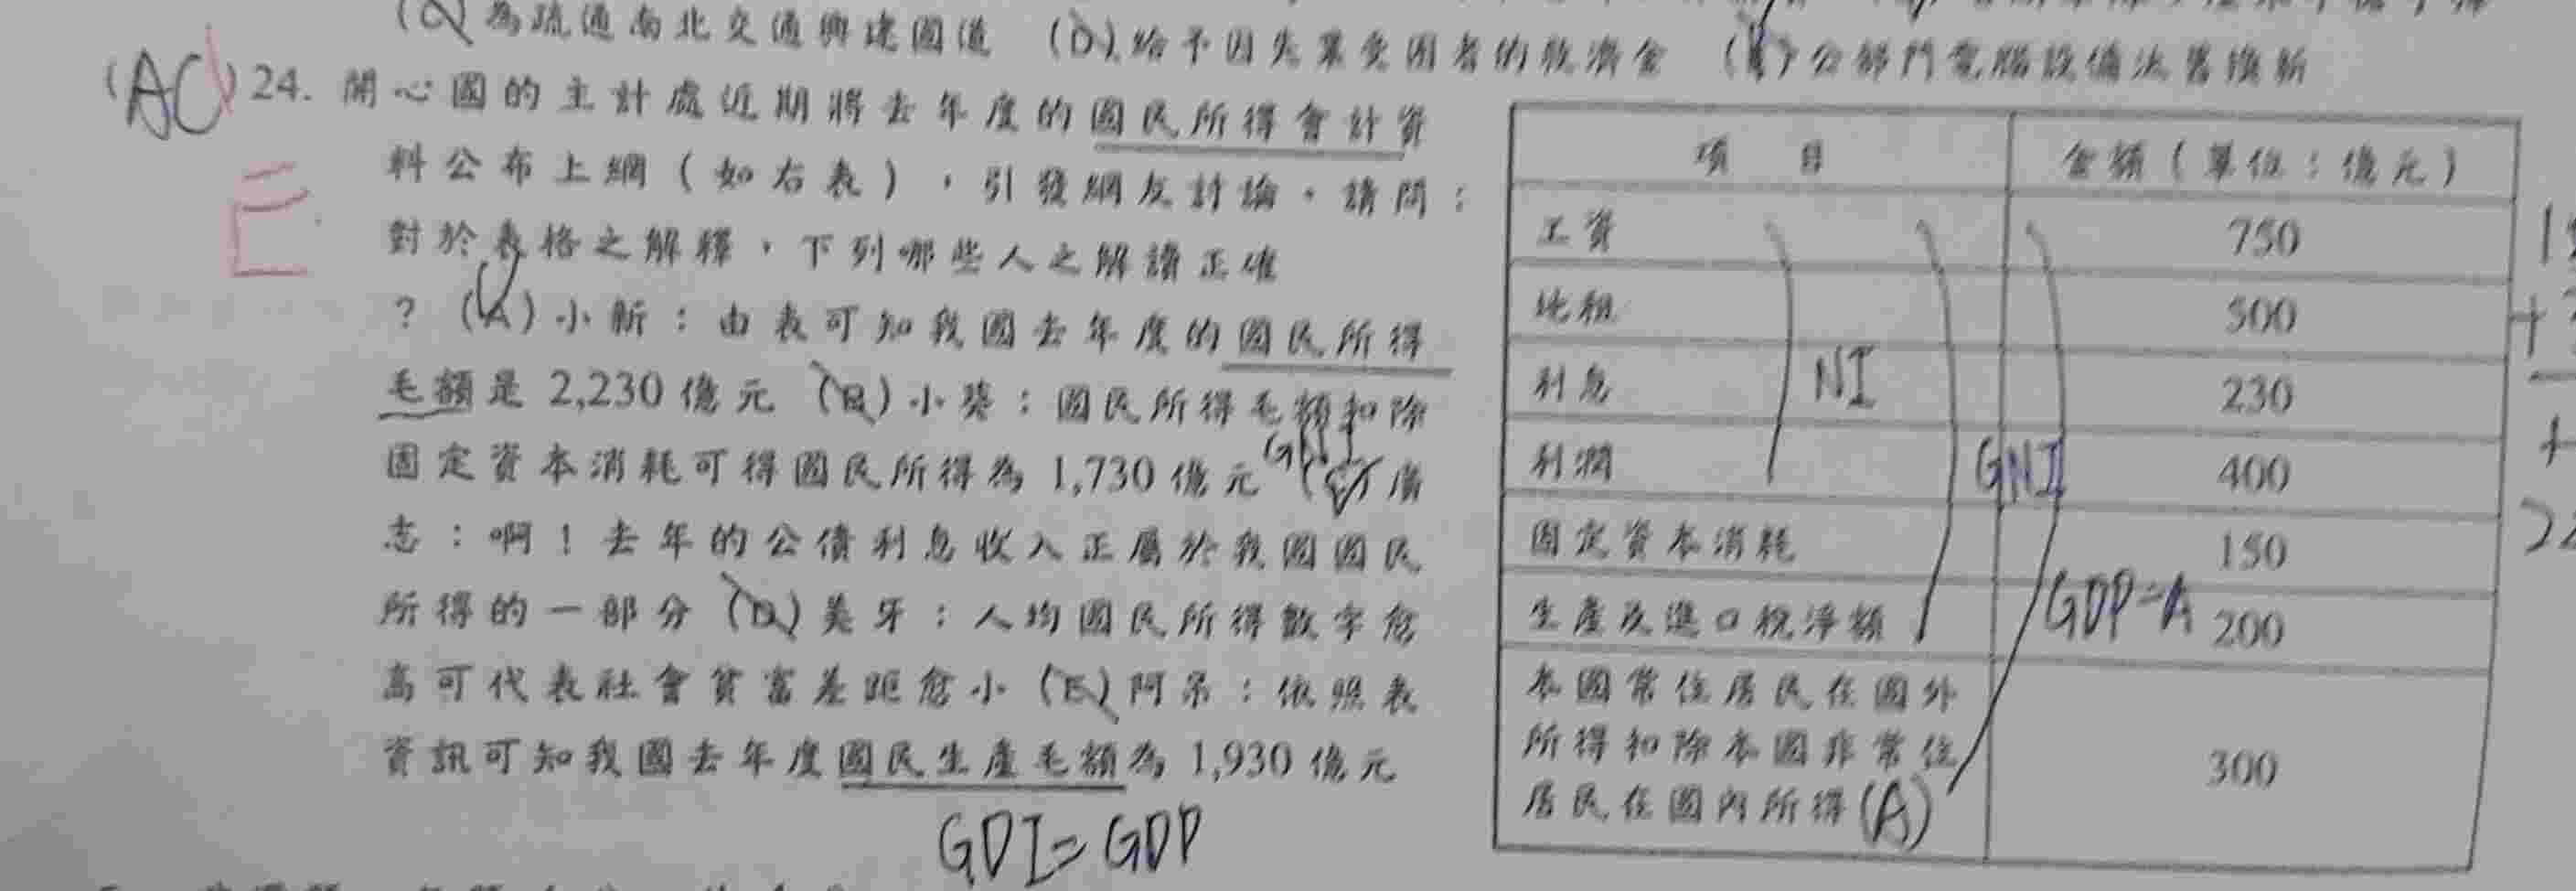 (C)為疏通南北交通興建國道 (D)給予因失業受困者的救濟金 (E)公部門電腦設備汰舊換新
(AC)24. 開心國的主計處近期將去年度的國民所得會計資
料公布上網（如右表），引發網友討論。請問：
E
對於表格之解釋，下列哪些人之解讀正確
？ (A)小新：由表可知我國去年度的國民所得
毛額是 2,230 億元 (B)小葵：國民所得毛額扣除
固定資本消耗可得國民所得為 1,730 億元 (C)廣
志：啊！去年的公債利息收入正屬於我國國民
所得的一部分 (D)美牙：人均國民所得數字愈
高可代表社會貧富差距愈小 (E)阿呆：依照表
資訊可知我國去年度國民生產毛額為 1,930 億元
GDI=GDP
項 目 金額（單位：億元）
工資 750
地租 500
利息 NI 230
利潤 GNI 400
固定資本消耗 150
生產及進口稅淨額 GDP=A 200
本國常住居民在國外
所得扣除本國非常住 300
居民在國內所得(A)